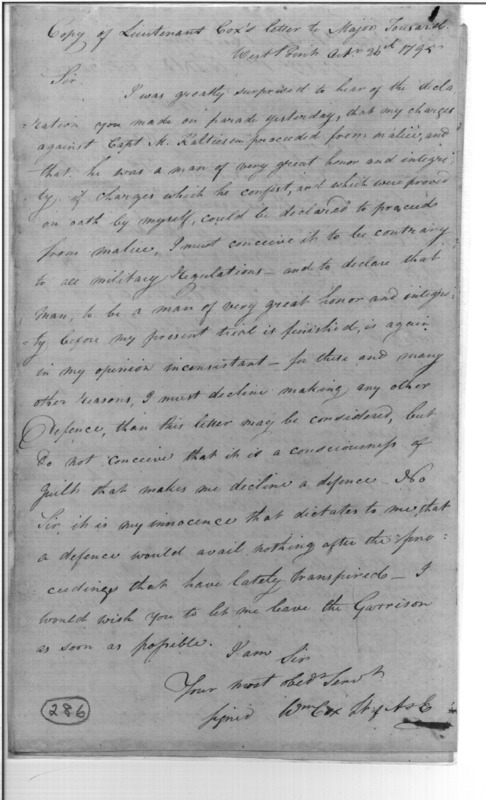 Copy of Lieutenant Cox's letter to Major Tousard.
West Point Octr. 26th 1795
Sir
I was greatly surprised to hear of the decla
-ration you made on parade yesterday, that my charges
against Capt M. Kalteisen proceeded from malice, and
that he was a man of very great honor and integri
ty, if charges which he confest, and which were proved
on oath by myself, could be declared to proceed
from malice, I must conceive it to be contrary
to all military Regulations – and to declare that
man, to be a man of very great honor and integri
-ty before my present trial is finished, is again
in my opinion inconsistant – for these and many
other reasons, I must decline making any other
Defence, than this letter may be considered, but
do not conceive that it is a consciousness of
guilt that makes me decline a defence – No
Sir, it is my innocence that dictates to me, that
a defence would avail nothing after the pro-
ceedings that have lately transpired – I
would wish you to let me leave the Garrison
as soon as possible.
I am Sir
Your most Obedt Servt
signed Wm Cox Lt of A & E
286